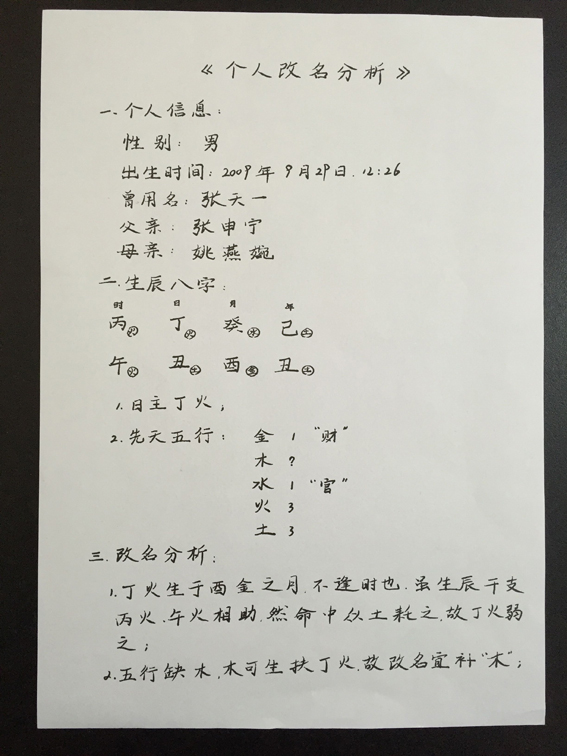 《个人改名分析》
一.个人信息:
性别: 男
出生时间: 2009年9月29日.12:26
曾用名: 张天一
父亲: 张申宁
母亲: 姚燕婉
二.生辰八字:
时 日 月 年
丙火 丁火 癸水 己土
午火 丑土 酉金 丑土
1.日主丁火;
2.先天五行: 金 1 "财"
木 ?
水 1 "官"
火 3
土 3
三.改名分析:
1.丁火生于酉金之月.不逢时也.虽生辰干支
丙火.午火相助.然命中以土耗之.故丁火弱
之;
2.五行缺木.木可生扶丁火.故改名宜补"木";